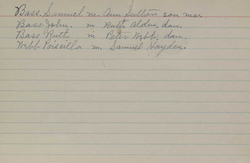 Bass, Samuel m. Ann Sutton son mar.
Bass John. m Ruth Alden, dau.
Bass Ruth m Peter Webb, dau.
Webb Priscilla m. Samuel Hayden.